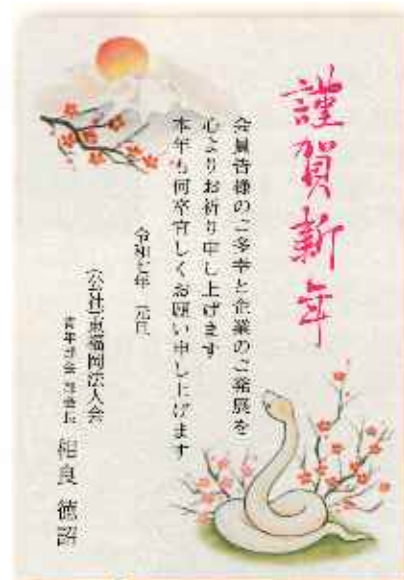 謹賀新年
会員皆様のご多幸と企業のご発展を
心よりお祈り申し上げます
本年も何卒宜しくお願い申し上げます
令和七年 元旦
(公社)東福岡法人会
青年部会 部会長 相良 徳